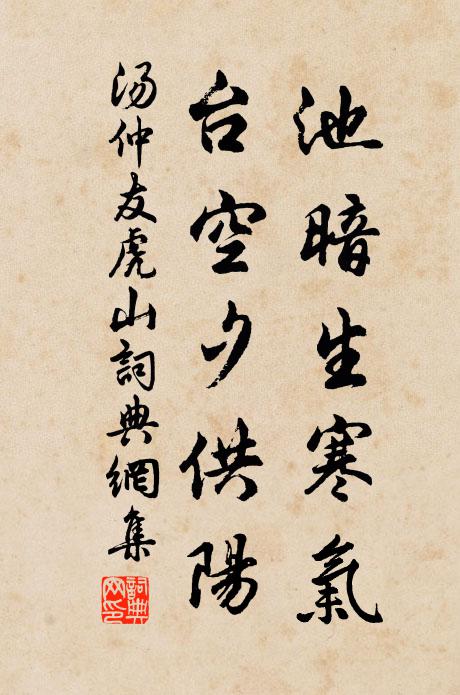 池暗生寒氣
台空夕供陽
湯仲友虎山詞典網集
詞典網印